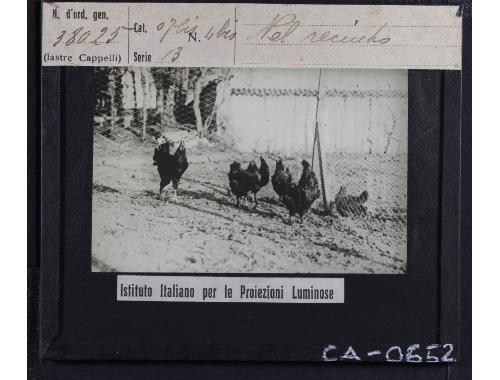 N. d'ord. gen.
38025
(lastre Cappelli)
Cat. 07bis N. 4bis
Serie 13
Nel recinto
Istituto Italiano per le Proiezioni Luminose
CA-0652